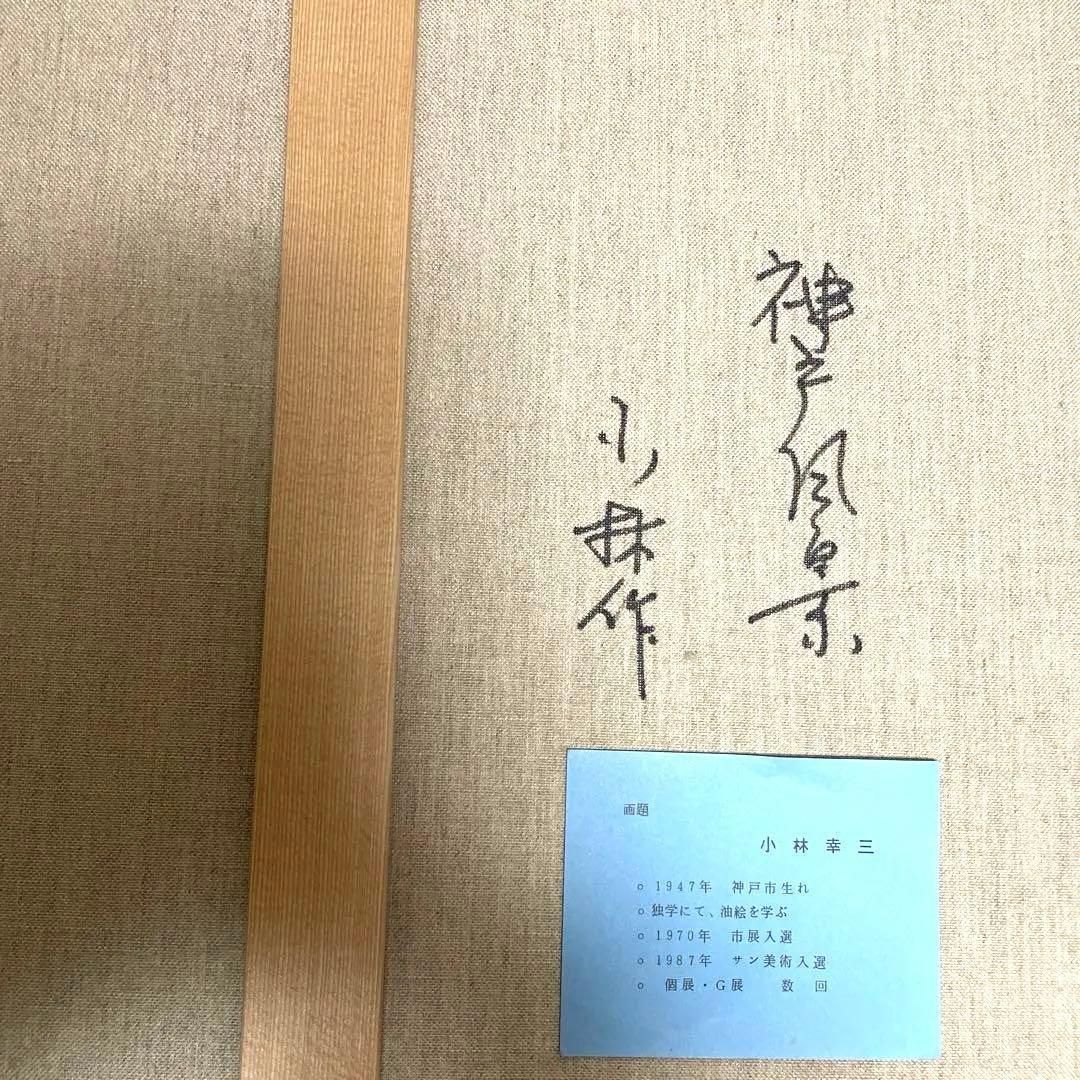 神戸風景
小林作
画題
小林幸三
○ 1947年 神戸市生れ
○ 独学にて、油絵を学ぶ
○ 1970年 市展入選
○ 1987年 サン美術入選
○ 個展・G展 数回